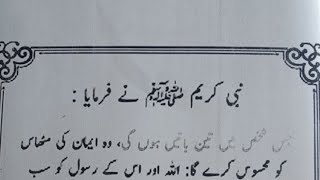 نبی کریم ﷺ نے فرمایا :
جس شخص میں تین باتیں ہوں گی، وہ ایمان کی مٹھاس
کو محسوس کرے گا: اللہ اور اس کے رسول کو سب